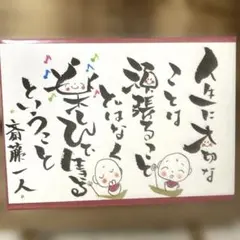 人生に大切な
ことは
頑張ること
ではなく
楽しんで生きる
ということ
斎藤一人